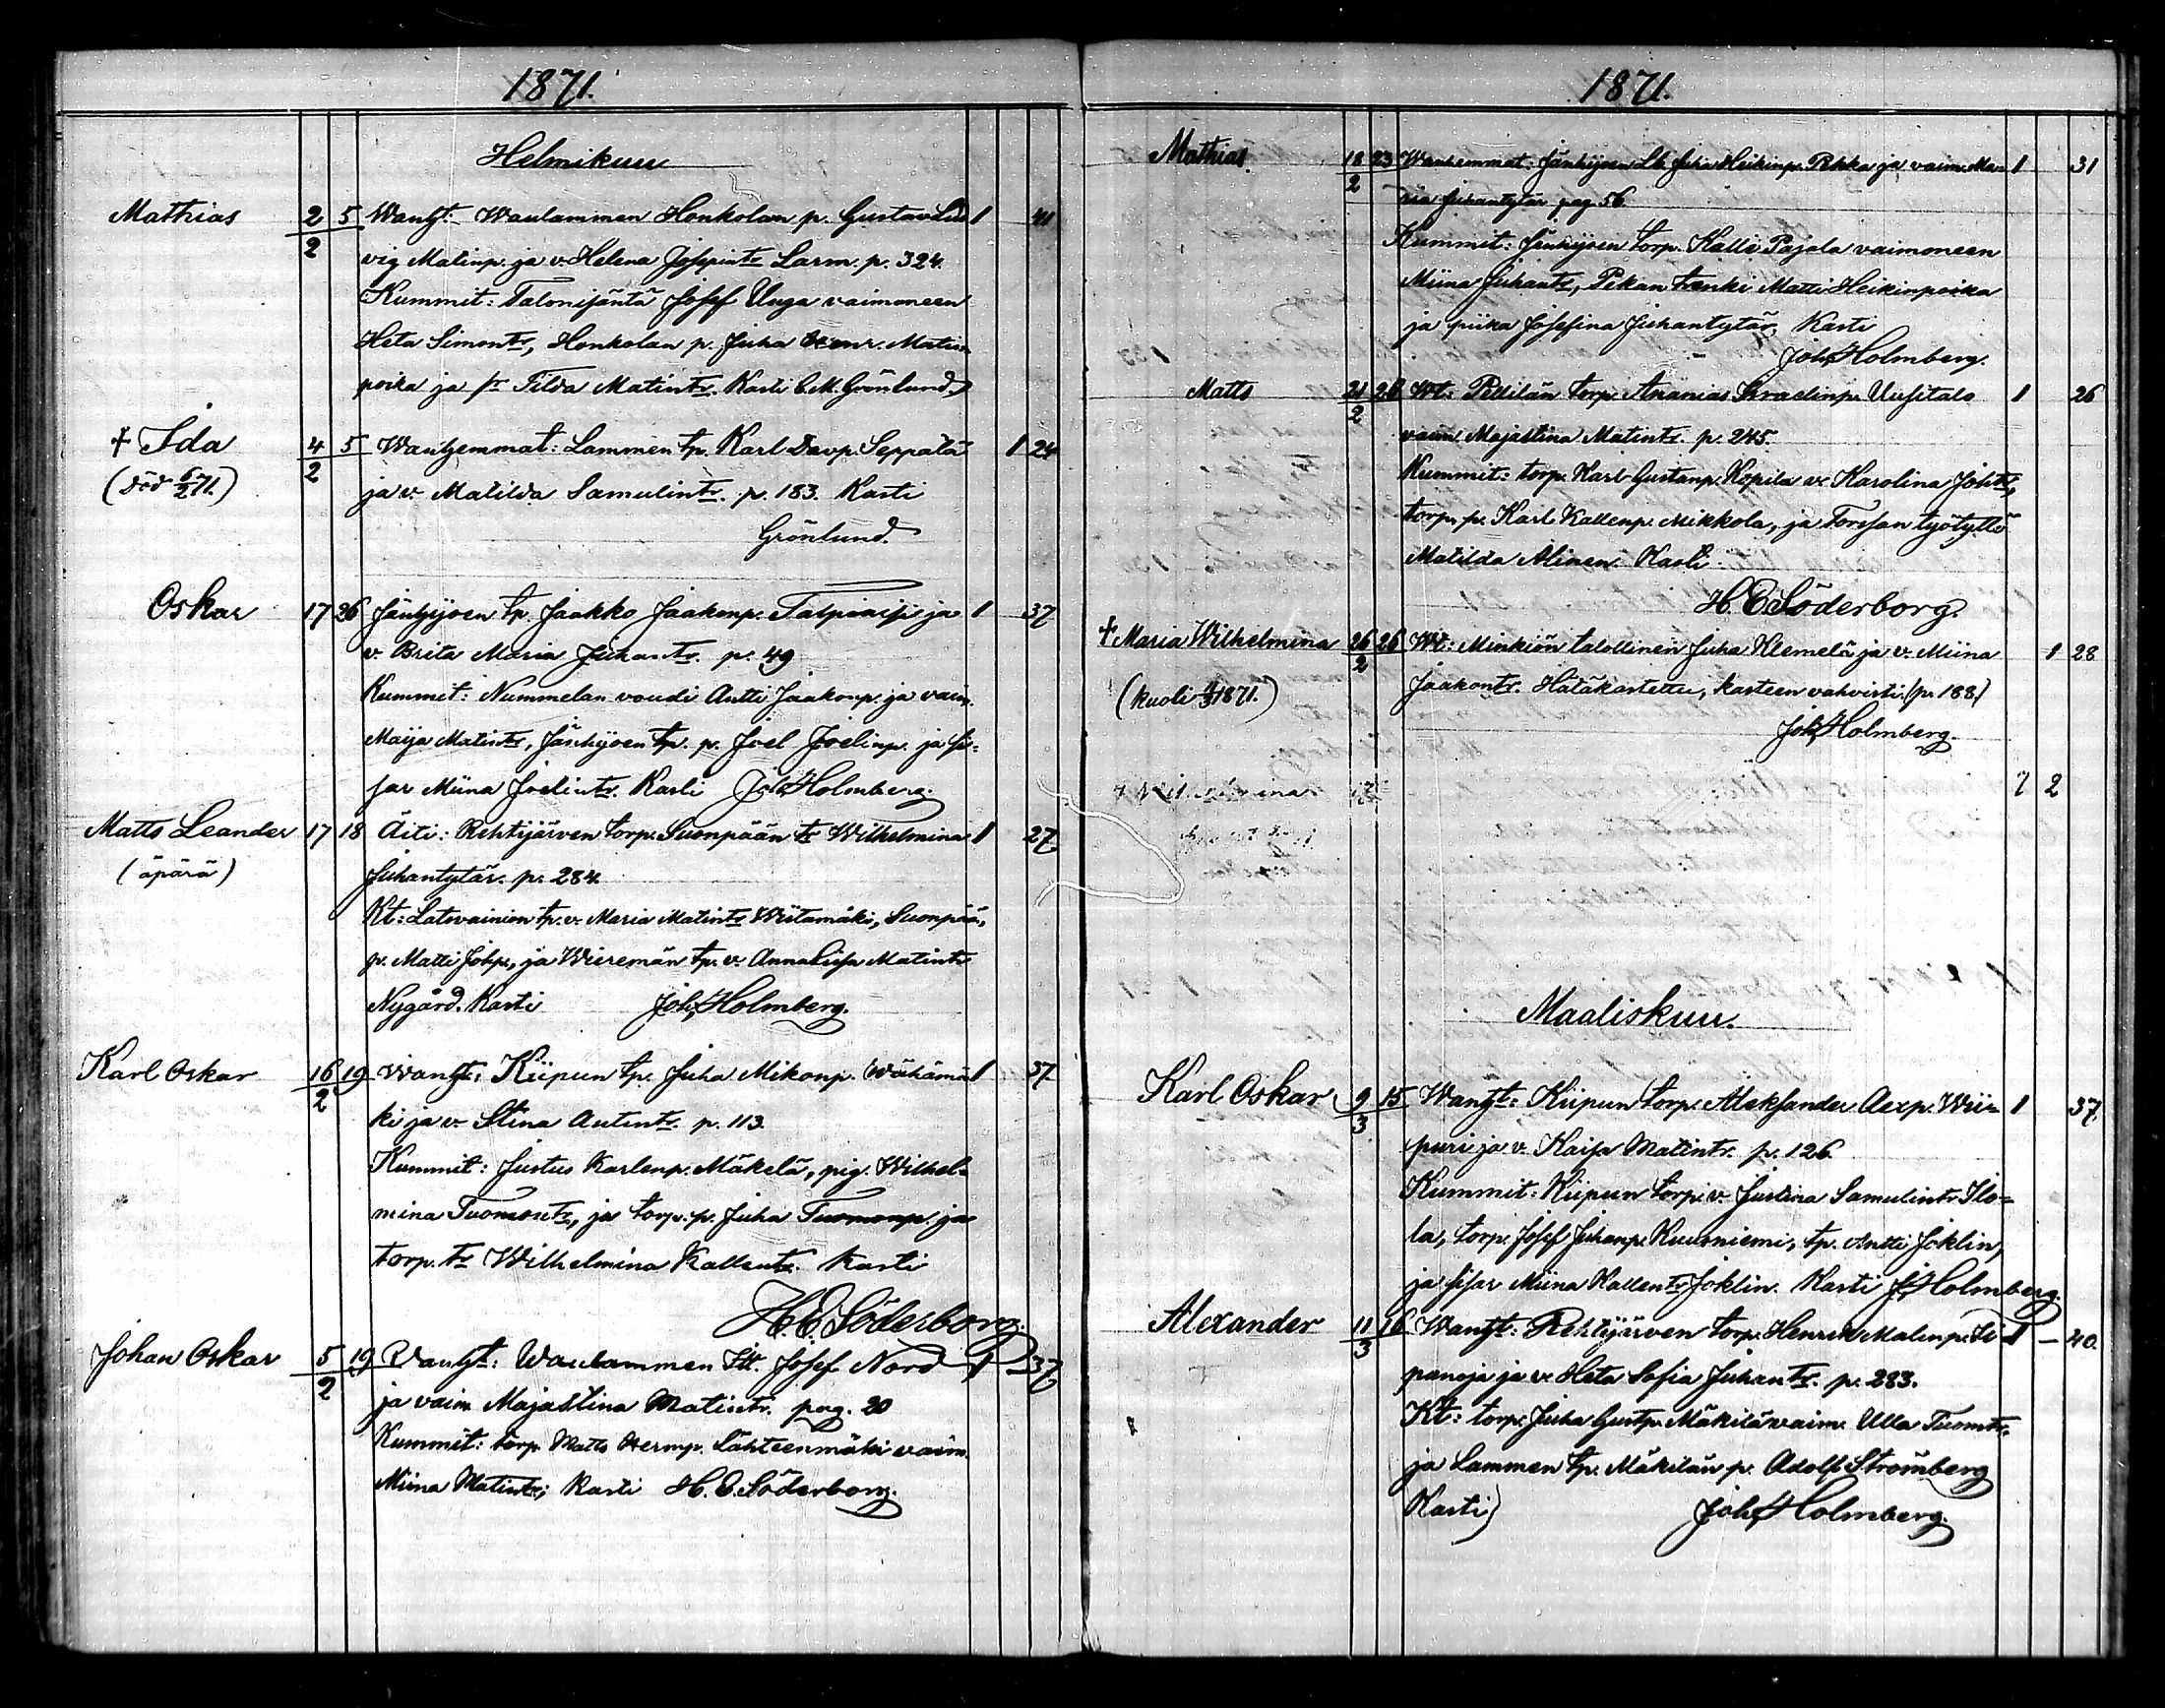 1871.
Helmikuu
Mathias 2/2 5 Wanht: Waulammen Honkolan p. Gustav Lud 1 41
vig Matinp. ja v. Helena Josepintr Larm. p. 324.
Kummit: Talonisäntä Josef Unga vaimoneen
Heta Simontr, Honkolan p. Juha Henr. Matin
poika ja pr Tilda Matintr. Kasti C.M. Grönlund
† Ida 4/2 5 Wanhemmat: Lammen tp. Karl Davp. Seppälä 1 24
(död 6/2 71.) ja v. Matilda Samulintr. p. 183. Kasti
Grönlund.
Oskar 17 26 Jänhijoen tp. Jaakko Jaakonp. ja 1 37
v. Brita Maria Juhantr. p. 49
Kummit: Nummelan voudi Antti Jaakonp. ja vaim.
Maija Matintr, Jänhijoen tp. p. Joel Joelinp. ja si-
sar Miina Joelintr. Kasti Joh. Holmberg.
Matts Leander 17 18 Äiti: Rehtijärven torp. Suonpään tr Wilhelmina 1 27
(äpärä) Juhantytär. p. 284.
Kt: Latovainion tp. v. Maria Matintr Wiitamäki, Suonpää,
p. Matti Johp., ja Wieremän tp. v. Annalisa Matintr
Nygård. Kasti Joh. Holmberg.
Karl Oskar 16/2 19 Wanht: Kiipun tp. Juha Mikonp. Wähämä 1 37
ki ja v. Stina Antintr. p. 113.
Kummit: Justus Karlenp. Mäkelä, pig. Wilhel-
mina Tuomontr, ja torp. p. Juha Tuomonp. ja
torp. tr Wilhelmina Kallentr. Kasti
H. E. Söderborg.
Johan Oskar 5/2 19 Wanht: Waulammen Itt. Josef Nord 1 – 37
ja vaim. Majastina Matintr. pag. 20
Kummit: torp. Matts Hermp. Lähteenmäki vaim.
Miina Matintr; Kasti H. E. Söderborg.
1871.
Mathias. 18/2 23 Wanhemmat: Jänhijoen Lb. Juha Heikinp. Pekka ja vaim. Ma- 1 31
ria Juhantytär pag. 56
Kummit: Jänhijoen torp. Kalle Pajala vaimoneen
Miina Juhantr, Pekan trenki Matti Heikinpoika
ja piika Josefina Juhantytär, Kasti
Joh. Holmberg.
Matts 21/2 26 Wt: Pellilän torp. Ananias Israelinp. Uusitalo 1 26
vaim Majastina Matintr. p. 245.
Kummit: torp. Karl Gustanp. Kopila v. Karolina Johtr,
torp. p. Karl Kallenp. Mikkola, ja Forssan työtyttö
Matilda Alinen. Kasti
H. E. Söderborg.
† Maria Wilhelmina 26/2 26 Wt: Minkiön talollinen Juha Klemelä ja v. Miina 1 28
(kuoli 4/3 1871.) Jaakontr. Hätäkastettu, kasteen vahvisti (p. 188)
Joh. Holmberg.
7 2
Maaliskuu.
Karl Oskar 9/3 15 Wanht: Kiipun torp. Aleksander Aexp. Wii- 1 37.
puri ja v. Kaisa Matintr. p. 126.
Kummit: Kiipun torp. v. Justina Samulintr Ilo-
la, torp. Josef Juhanp. Kuusniemi, tp. Antti Joklin,
ja sisar Miina Kallentr Joklin. Kasti J. Holmberg.
Alexander 11/3 16 Wanht: Rehtijärven torp. Henrik Matinp. Si 1 – 40.
panoja ja v. Heta Sofia Juhantr. p. 283.
Kt: torp. Juha Gustp. Mäkilä vaim. Ulla Tuomtr.
ja Lammen tp. Mäkilän p. Adolf Strömberg
Kasti) Joh. Holmberg.